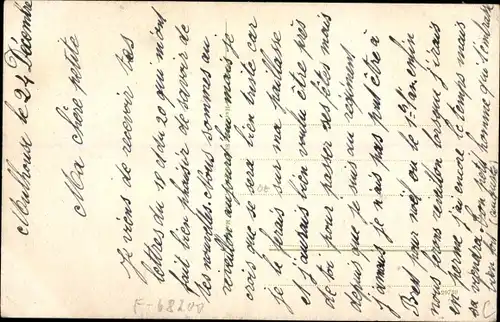 Mulhouse le 24 Décembre
Ma chère petite
Je viens de recevoir tes
lettres du 18 et du 20 qui m'ont
fait bien plaisir de savoir de
tes nouvelles. Nous sommes au
réveillon aujourd'hui mais je
crois que se sera bien triste car
je le ferais sur ma paillasse
et j'aurais bien voulu être près
de toi pour passer ses fêtes mais
depuis que je suis au régiment
jamais je vais pas peut être à
Brest pour noël ou le 1er l'an enfin
nous ferons réveillon lorsque j'irais
en perme j'ai encore le temps mais
sa viendra. Ton petit homme qui t'embrasse
F-68200